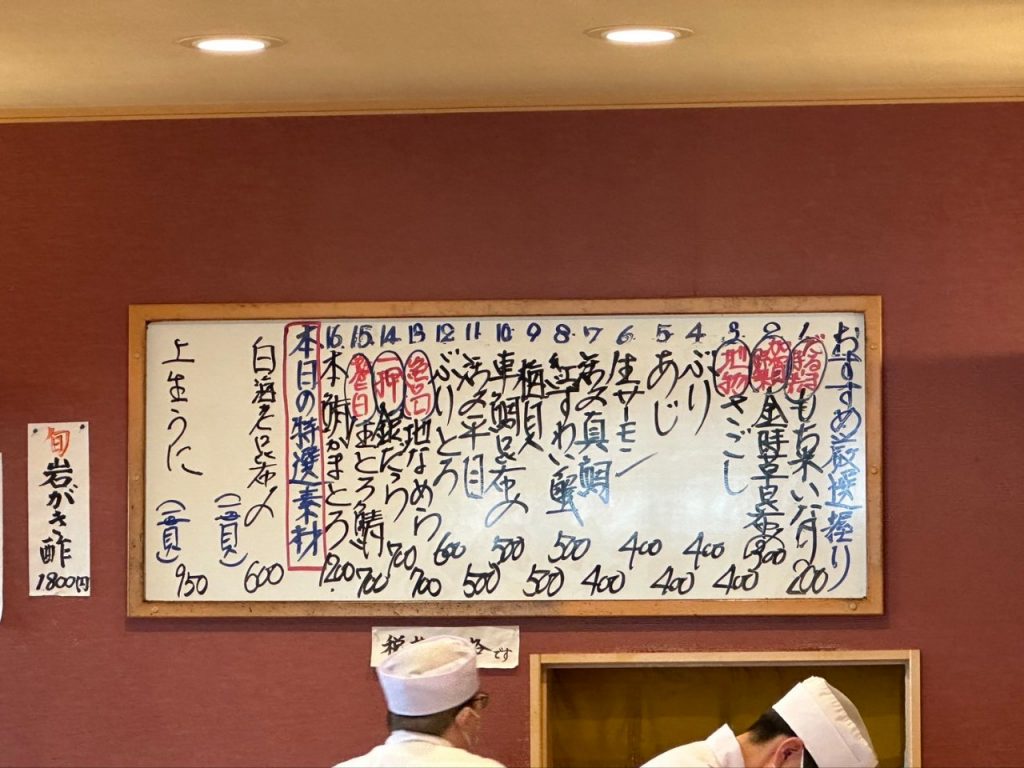 おすすめ厳選握り
1. もち米いなり 200
2. 300
3. さごし 400
4. ぶり 400
5. あじ 400
6. 生サーモン 400
7. 活〆真鯛 400
8. 紅ずわい蟹 500
9. 梅貝 500
10. 車鯛昆布〆 500
11. 活〆平目 500
12. ぶりとろ 600
13. 地なめら 700
14. 一押 銀だら 700
15. とろ鯖 700
16. 本鮪かまとろ 1200
本日の特選素材
白海老昆布〆 (一貫) 600
上生うに (一貫) 950
旬
岩がき酢
1800円
税
です